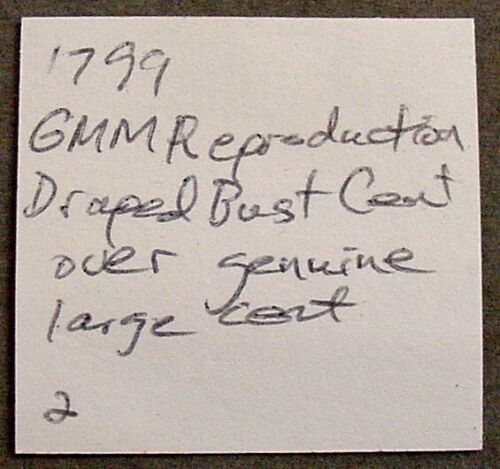 1799
GMM Reproduction
Draped Bust Cent
over genuine
large cent
2